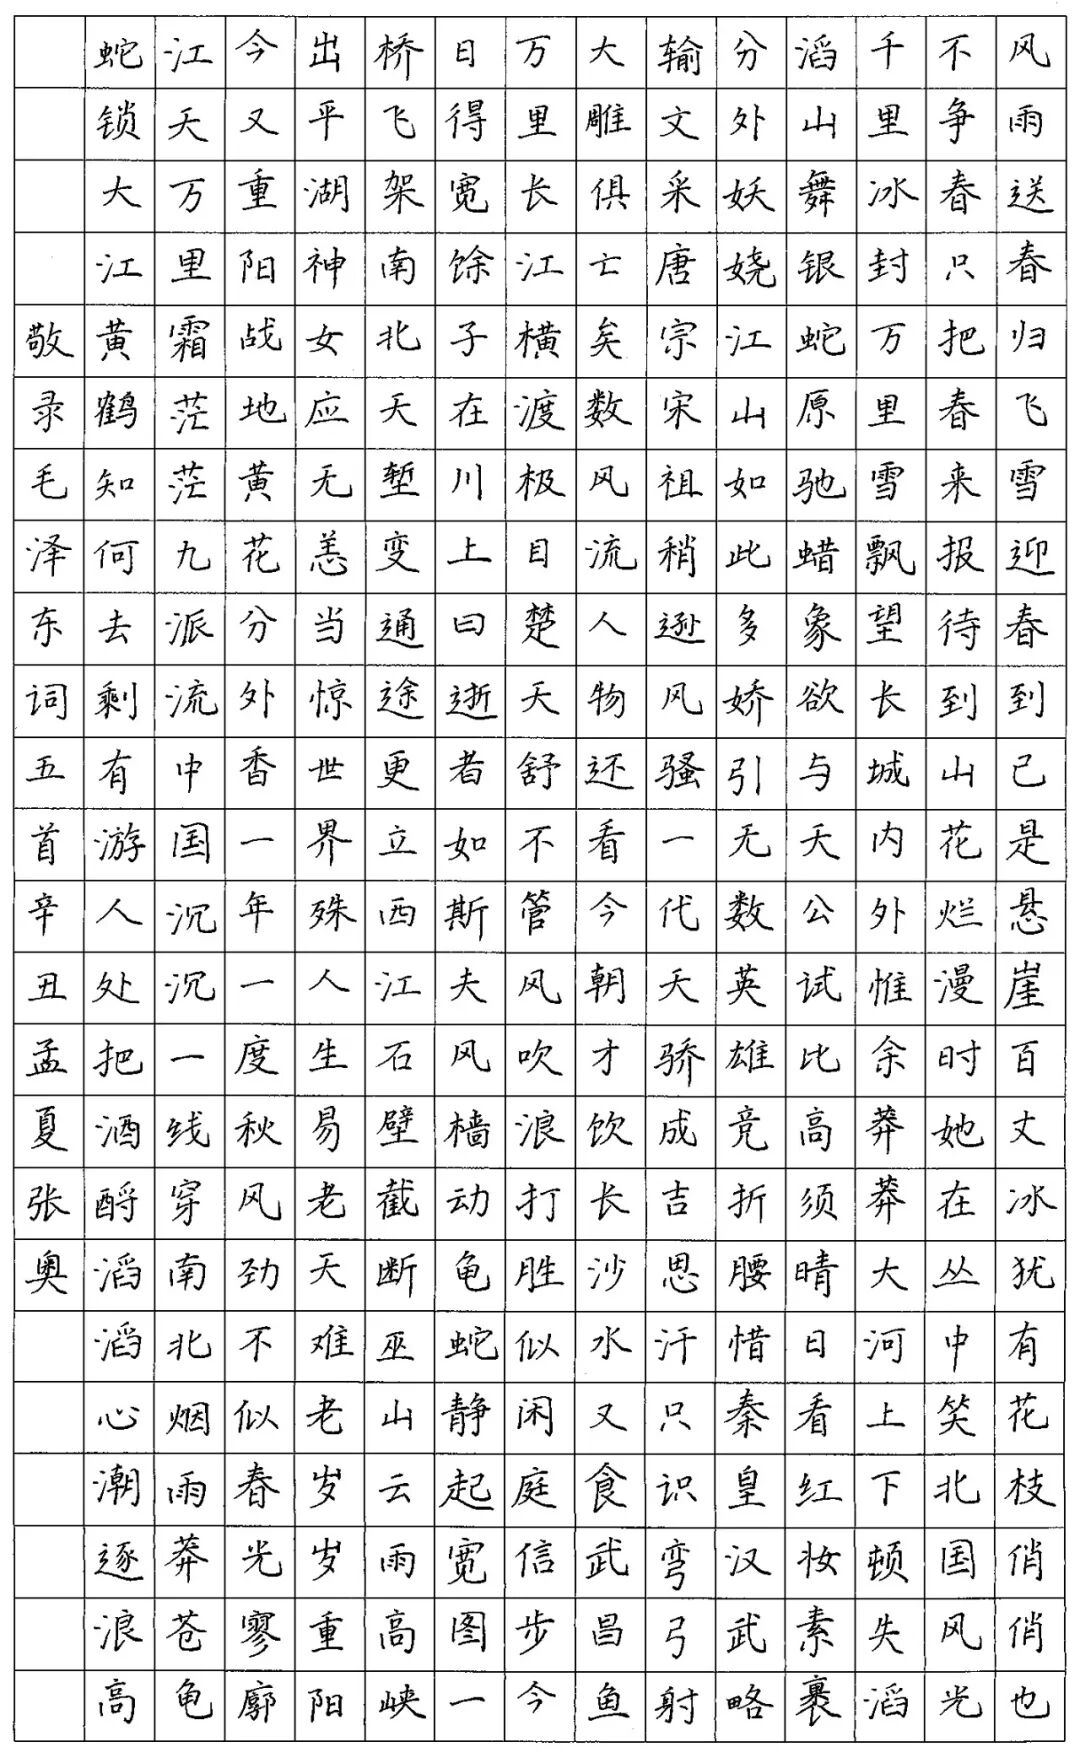 风雨送春归飞雪迎春到已是悬崖百丈冰犹有花枝俏俏也
不争春只把春来报待到山花烂漫时她在丛中笑北国风光
千里冰封万里雪飘望长城内外惟余莽莽大河上下顿失滔
滔山舞银蛇原驰蜡象欲与天公试比高须晴日看红妆素裹
分外妖娆江山如此多娇引无数英雄竞折腰惜秦皇汉武略
输文采唐宗宋祖稍逊风骚一代天骄成吉思汗只识弯弓射
大雕俱亡矣数风流人物还看今朝才饮长沙水又食武昌鱼
万里长江横渡极目楚天舒不管风吹浪打胜似闲庭信步今
日得宽馀子在川上曰逝者如斯夫风樯动龟蛇静起宽图一
桥飞架南北天堑变通途更立西江石壁截断巫山云雨高峡
出平湖神女应无恙当惊世界殊人生易老天难老岁岁重阳
今又重阳战地黄花分外香一年一度秋风劲不似春光寥廓
江天万里霜茫茫九派流中国沉沉一线穿南北烟雨莽苍龟
蛇锁大江黄鹤知何去剩有游人处把酒酹滔滔心潮逐浪高
敬录毛泽东词五首辛丑孟夏张奥